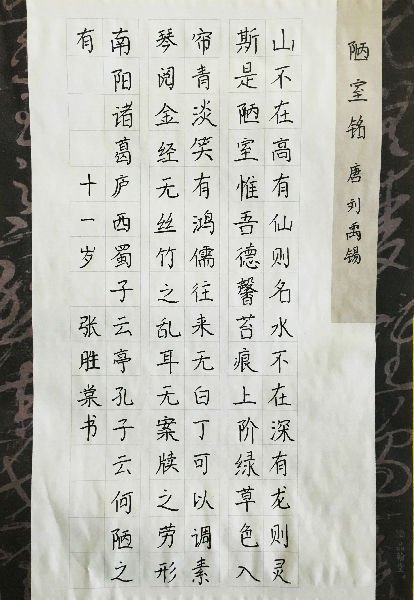 陋室铭 唐 刘禹锡
山不在高有仙则名水不在深有龙则灵
斯是陋室惟吾德馨苔痕上阶绿草色入
帘青淡笑有鸿儒往来无白丁可以调素
琴阅金经无丝竹之乱耳无案牍之劳形
南阳诸葛庐西蜀子云亭孔子云何陋之
有 十一岁 张胜棠书